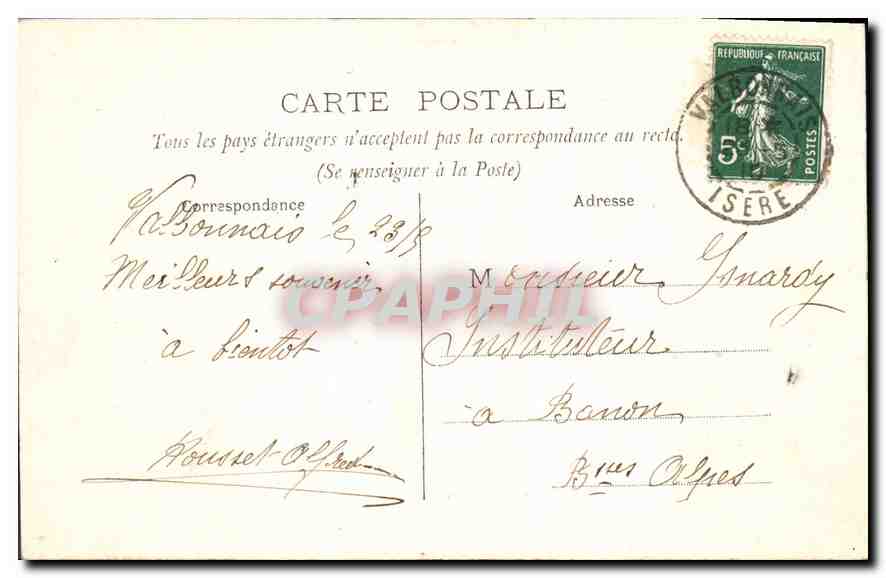 CARTE POSTALE
Tous les pays étrangers n'acceptent pas la correspondance au recto.
(Se renseigner à la Poste)
REPUBLIQUE FRANÇAISE
5
POSTES
VALBONNAIS
ISERE
Correspondance
Adresse
Valbonnais le 23/5
Meilleurs souvenir
à bientot
Rousset Alfred
Monsieur Isnardy
Instituteur
à Banon
Bses Alpes
CPAPHIL